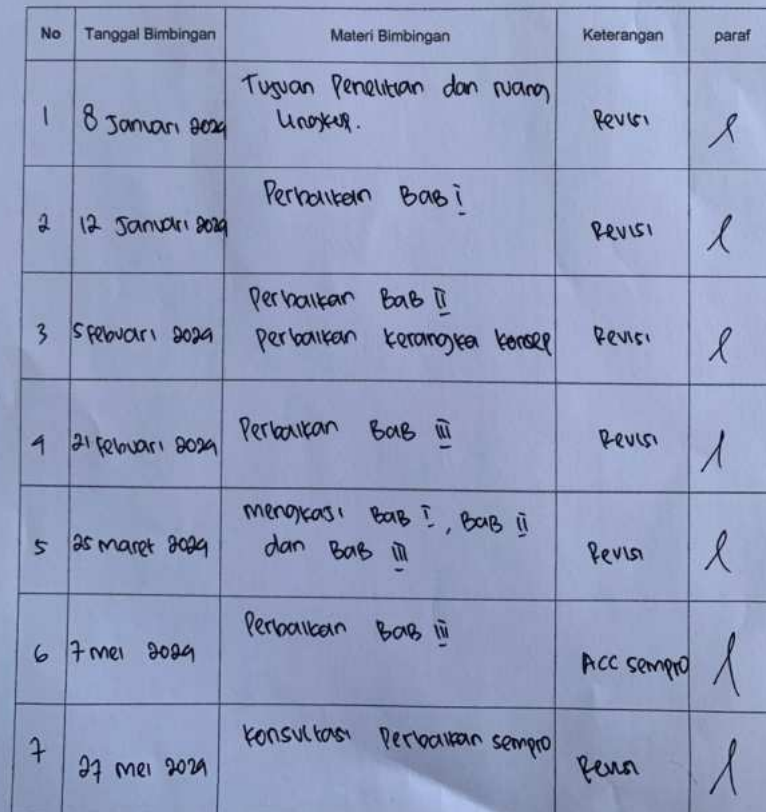 No Tanggal Bimbingan Materi Bimbingan Keterangan paraf
1 8 Januari 2024 Tujuan Penelitian dan ruang lingkup. Revisi
2 12 Januari 2024 Perbaikan BAB I Revisi
3 5 Febuari 2024 Perbaikan BAB II
Perbaikan kerangka konsep Revisi
4 21 Febuari 2024 Perbaikan BAB III Revisi
5 25 maret 2024 mengkaji BAB I, BAB II
dan BAB III Revisi
6 7 mei 2024 Perbaikan BAB III ACC sempro
7 27 mei 2024 Konsultasi Perbaikan sempro Revisi